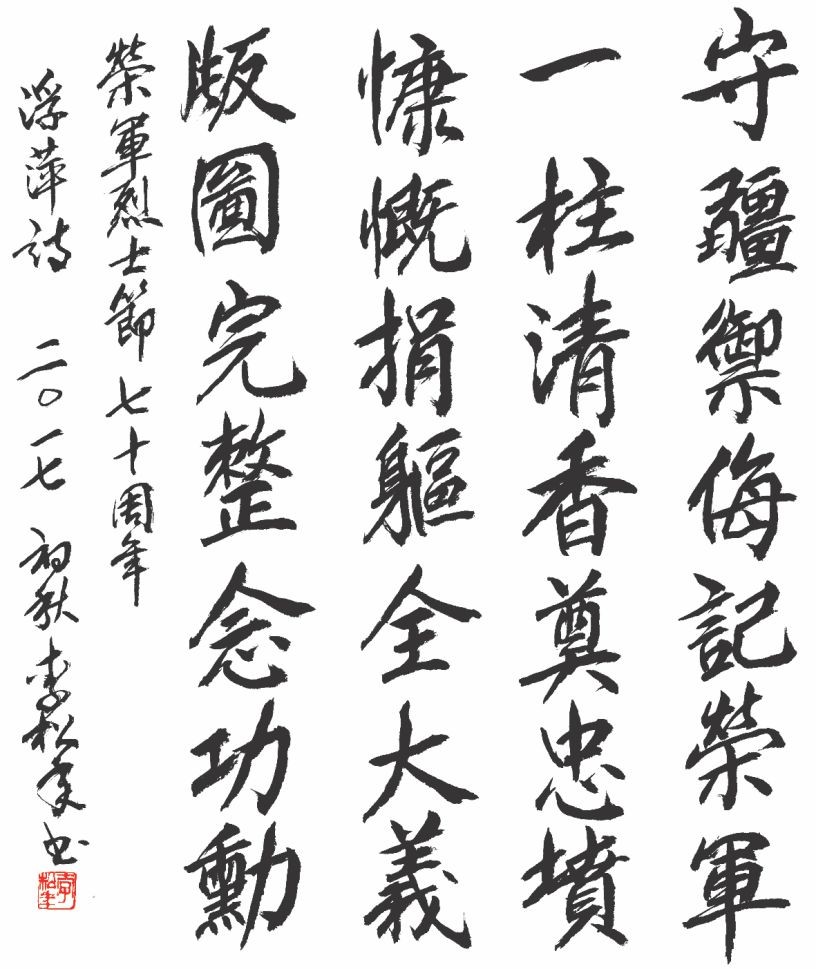 守疆禦侮記榮軍
一柱清香奠忠墳
慷慨捐軀全大義
版圖完整念功勳
榮軍烈士節七十周年
浮萍詩 二〇一七 初秋 李松年书
李松年